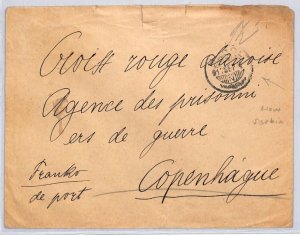 Croix rouge danoise
Agence des prisonni
ers de guerre
Franko
de port
Copenhague
now
Serbia